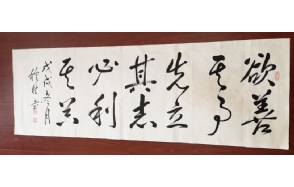 欲善
其事
先立
其志
必利
其器
戊戌冬月